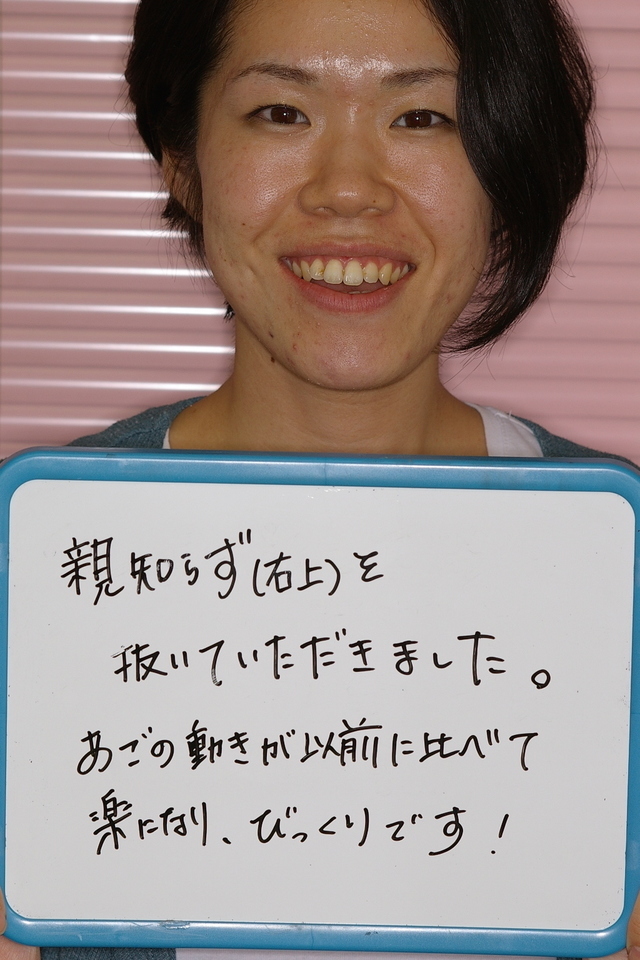 親知らず(右上)を
抜いていただきました。
あごの動きが以前に比べて
楽になり、びっくりです!